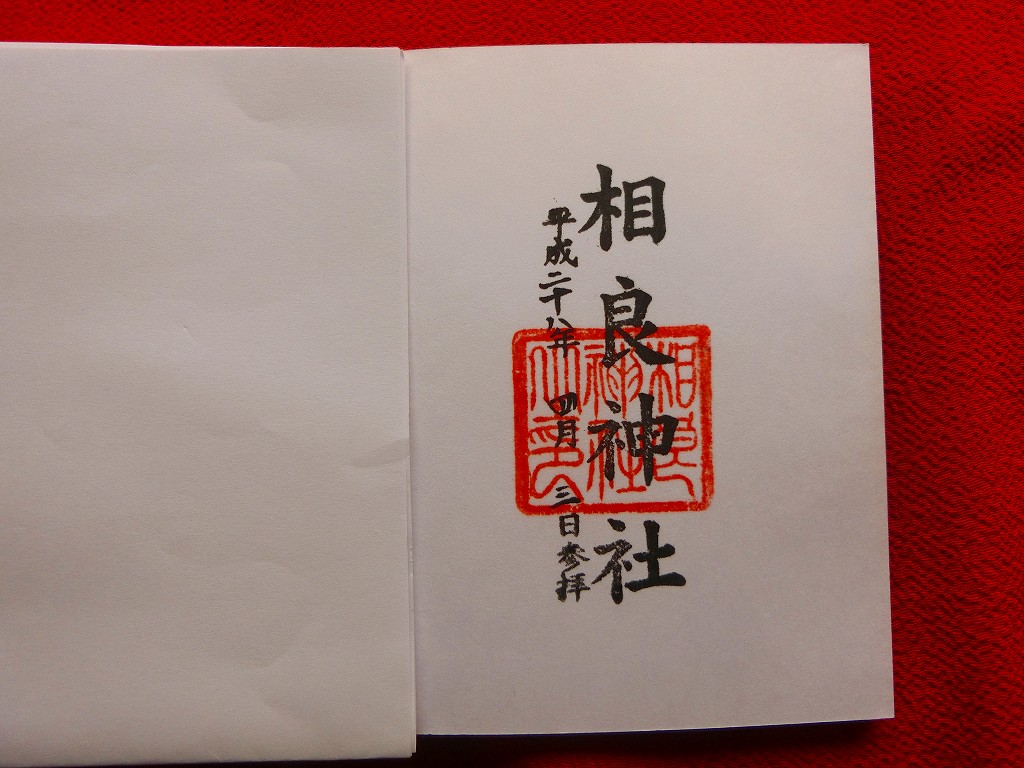 相良神社
平成二十八年 四月 三日参拝
相良
神社
之印